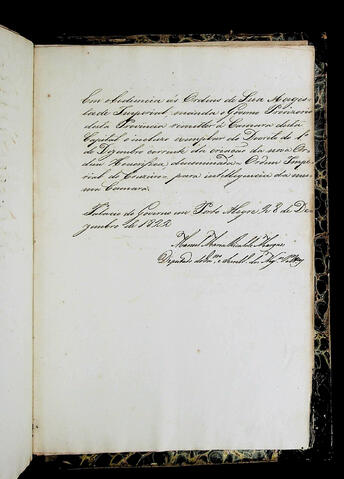 Em obediencia ás Ordens de Sua Mages-
tade Imperial, manda o Governo Provisorio
desta Provincia remetter á Camara desta
Capital o incluso exemplar do Decreto do 1º
de Dezembro corrente da criação da nova Or-
dem Honorifica denominada Ordem Impe-
rial do Cruzeiro para intelligencia da mes-
ma Camara.
Palacio do Governo em Porto Alegre 28 de De-
zembro de 1822
Manoel Maria Ricalde Marques
Deputado do Gov.